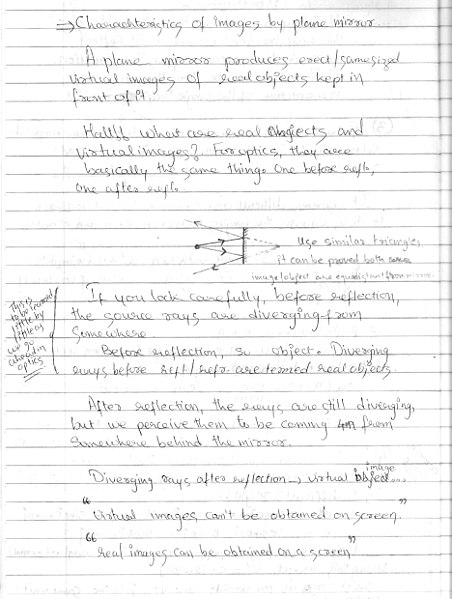 ⇒ Charachteristics of images by plane mirror.
A plane mirror produces erect/same sized
virtual images of real objects kept in
front of it.
Halt!! what are real objects and
virtual images? For optics, they are
basically the same things. One before refln,
One after refln.
Use similar triangles,
it can be proved both
image/object are equidistant from mirror.
This is
to be learned
little by
little as
we go
ahead in
optics
If you look carefully, before reflection,
the source rays are diverging from
Somewhere
Before reflection, so object. Diverging
rays before refl/refr. are termed real objects.
After reflection, the rays are still diverging,
but we perceive them to be coming from
Somewhere behind the mirror.
Diverging rays after reflection → virtual image...
"Virtual images can't be obtained on screen."
"real images can be obtained on a screen"